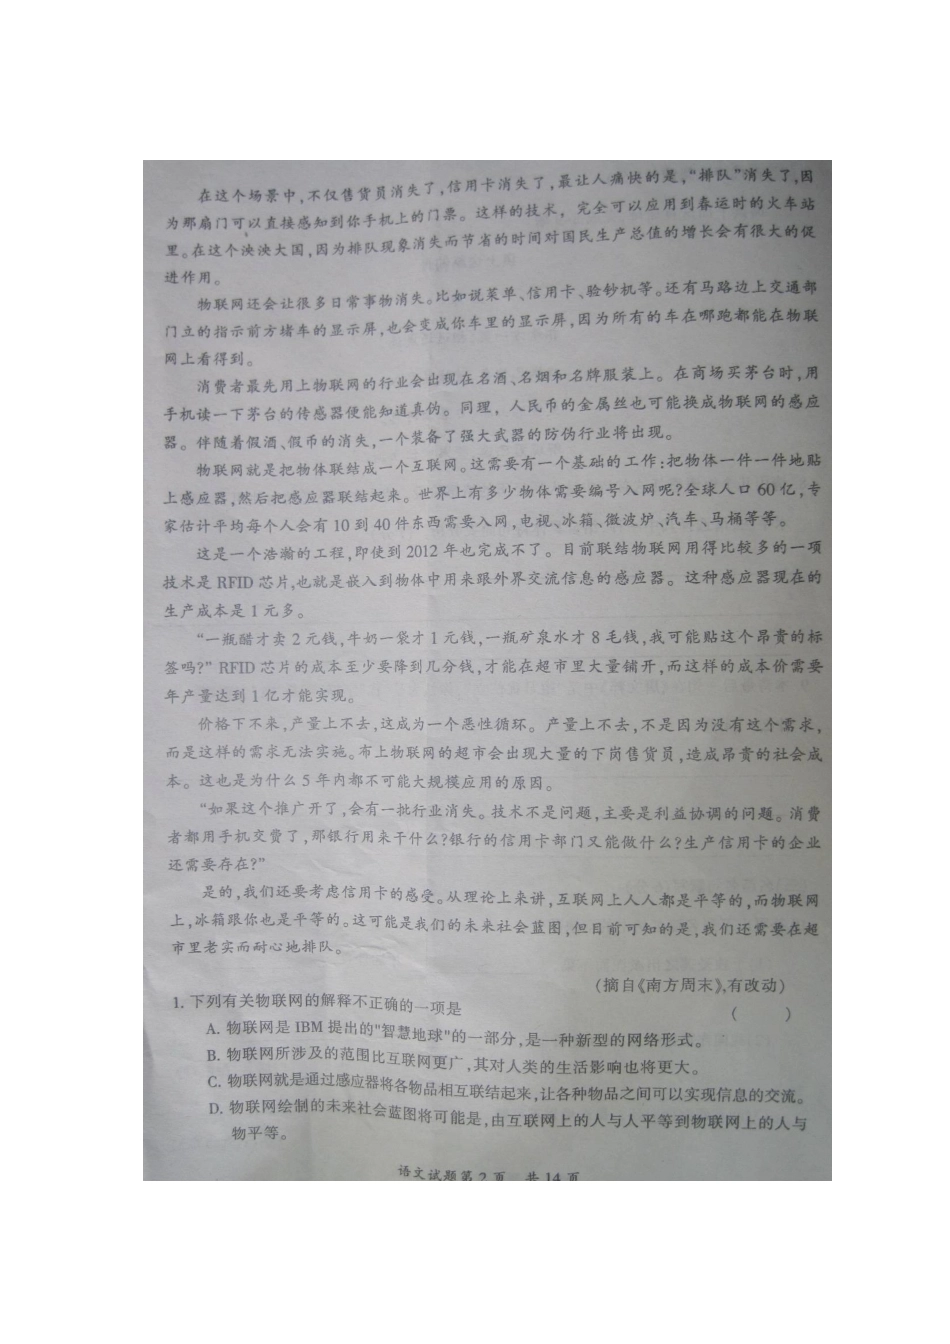 在这个场景中,不仅售货员消失了,信用卡消失了,最让人痛快的是,“排队”消失了,因
为那扇门可以直接感知到你手机上的门票。这样的技术，完全可以应用到春运时的火车站
里。在这个泱泱大国,因为排队现象消失而节省的时间对国民生产总值的增长会有很大的促
进作用。
物联网还会让很多日常事物消失。比如说菜单、信用卡、验钞机等。还有马路边上交通部
门立的指示前方堵车的显示屏,也会变成你车里的显示屏,因为所有的车在哪跑都能在物联
网上看得到。
消费者最先用上物联网的行业会出现在名酒、名烟和名牌服装上。在商场买茅台时,用
手机读一下茅台的传感器便能知道真伪。同理，人民币的金属丝也可能换成物联网的感应
器。伴随着假酒、假币的消失,一个装备了强大武器的防伪行业将出现。
物联网就是把物体联结成一个互联网。这需要有一个基础的工作:把物体一件一件地贴
上感应器,然后把感应器联结起来。世界上有多少物体需要编号入网呢?全球人口60亿,专
家估计平均每个人会有10到40件东西需要入网,电视、冰箱、微波炉、汽车、马桶等等。
这是一个浩瀚的工程,即使到2012年也完成不了。目前联结物联网用得比较多的一项
技术是RFID芯片,也就是嵌入到物体中用来跟外界交流信息的感应器。这种感应器现在的
生产成本是1元多。
“一瓶醋才卖2元钱,牛奶一袋才1元钱,一瓶矿泉水才8毛钱,我可能贴这个昂贵的标
签吗?”RFID芯片的成本至少要降到几分钱,才能在超市里大量铺开,而这样的成本价需要
年产量达到1亿才能实现。
价格下不来,产量上不去,这成为一个恶性循环。产量上不去,不是因为没有这个需求,
而是这样的需求无法实施。布上物联网的超市会出现大量的下岗售货员,造成昂贵的社会成
本。这也是为什么5年内都不可能大规模应用的原因。
“如果这个推广开了,会有一批行业消失。技术不是问题,主要是利益协调的问题。消费
者都用手机交费了,那银行用来干什么?银行的信用卡部门又能做什么?生产信用卡的企业
还需要存在?”
是的,我们还要考虑信用卡的感受。从理论上来讲,互联网上人人都是平等的,而物联网
上,冰箱跟你也是平等的。这可能是我们的未来社会蓝图,但目前可知的是,我们还需要在超
市里老实而耐心地排队。
(摘自《南方周末》,有改动)
1. 下列有关物联网的解释不正确的一项是 （　　）
A. 物联网是IBM提出的"智慧地球"的一部分,是一种新型的网络形式。
B. 物联网所涉及的范围比互联网更广,其对人类的生活影响也将更大。
C. 物联网就是通过感应器将各物品相互联结起来,让各种物品之间可以实现信息的交流。
D. 物联网绘制的未来社会蓝图将可能是,由互联网上的人与人平等到物联网上的人与
物平等。
语文试题第2页　共14页